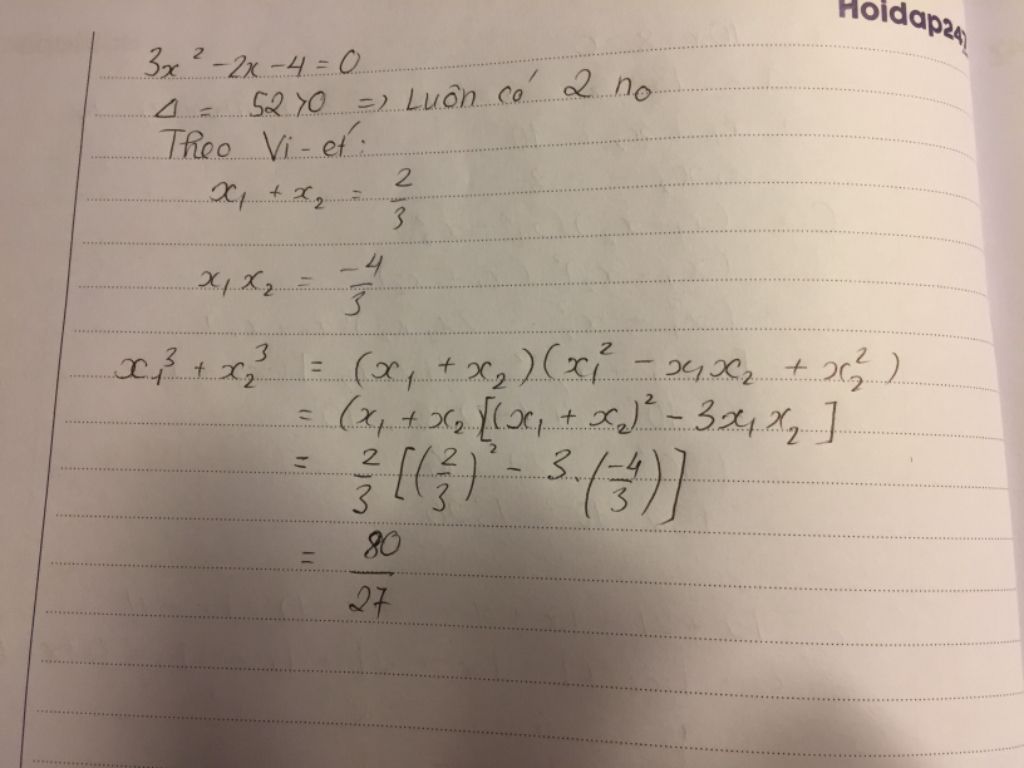 Hoidap247
3x² - 2x - 4 = 0
Δ = 52 > 0 => Luôn có 2 no
Theo Vi-ét:
x₁ + x₂ = 2/3
x₁x₂ = -4/3
x₁³ + x₂³ = (x₁ + x₂)(x₁² - x₁x₂ + x₂²)
= (x₁ + x₂)[(x₁ + x₂)² - 3x₁x₂]
= 2/3[(2/3)² - 3.(-4/3)]
= 80/27